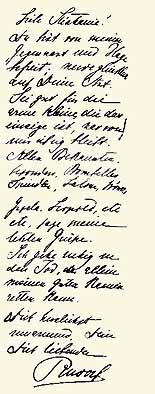 Liebe Stephanie!
Du bist von meiner
Gegenwart und Plage
befreit; werde glücklich
auf Deine Art.
Sei gut für die
arme Kleine, die das
einzige ist, was von
mir übrig bleibt.
Allen Bekannten,
besonders Bombelles,
Spindler, Latour, Nowo,
Gisela, Leopold, etc
etc, sage meine
letzten Grüsse.
Ich gehe ruhig in
den Tod, der allein
meinen guten Namen
retten kann.
Dich herzlichst
umarmend, Dein
Dich liebender
Rudolf